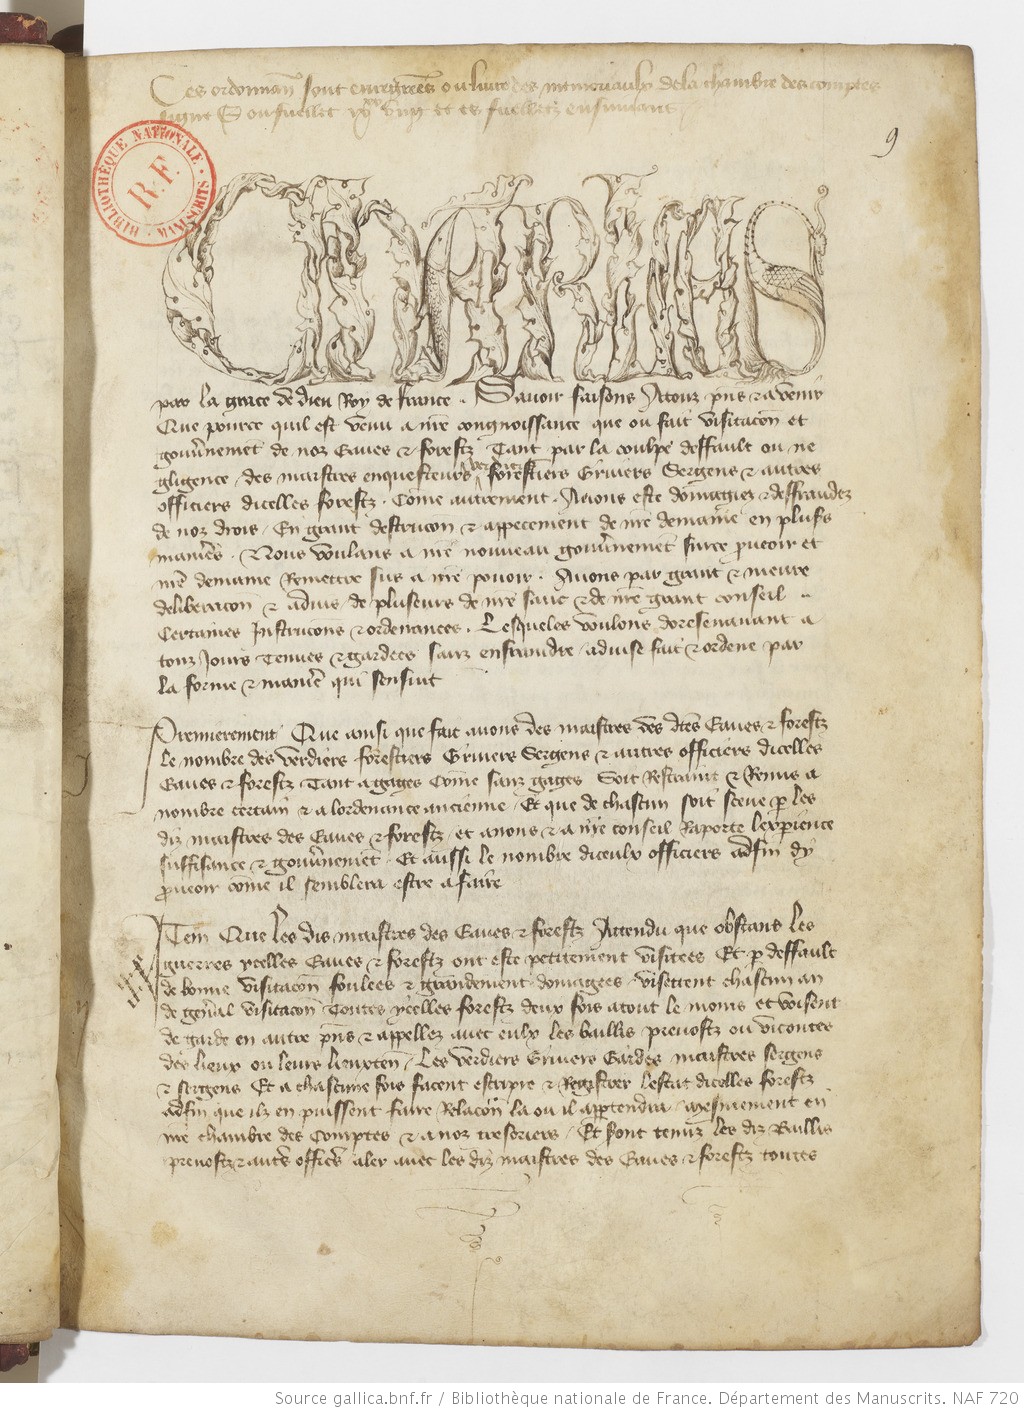 Ces ordonnan sont enregistrees ou livre des memoriaulx de la chambre des comptes
signe ou fueillet et es fueillets ensuivans
9
BIBLIOTHÈQUE NATIONALE
R.F.
MANUSCRITS
CHARLES
par la grace de dieu Roy de france . Savoir faisons Atouz pñs & avenir
Que pource quil est venu a nr̃e congnoissance que ou fait visitacoñ et
gouv̾nemẽt de noz Eaues & forestz Tant par la coulpe deffault ou ne
gligence / des maistres enquesteurs verdiers forestiers Gruiers Sergens & autres
officiers dicelles forestz . Cõme autrement . Avons este domagiez & deffraudez
de noz drois / En grant destrucoñ & appeticement de nr̃e demaine en plus̾s
manier̃s . Nous voulans a nr̃e nouveau gouv̾nemẽt sur ce pourveoir et
nr̃e demaine Remettre sus a nr̃e povoir . Avons par grant & meure
deliberacoñ & advis / de pluseurs de nr̃e sanc & de nr̃e grant conseil
Certaines Instrucoñs & ordenances . Lesqueles voulons doresenavant a
touz Jours Tenues & gardees sanz enfraindre / advise fait & ordene par
la forme & manier̃e qui sensuit
Premierement Que ainsi que fait avons des maistres des dc̃es Eaues & forestz
le nombre des verdiers forestiers Gruiers Sergens & autres officiers dicelles
Eaues & forestz Tant a gages Cõme sanz gages Soit Restraint & Remis a
nombre certain & a lordenance ancienne / Et que de chascun soit sceue p̱ les
diz maistres des Eaues & forestz / et a nous & a nr̃e conseil Raporte lexp̱ience
suffisance & gouv̾nemẽt . Et aussi le nombre diceulx officiers adfin dy
pourveoir cõme il semblera estre a faire
Item Que les dis maistres des Eaues & forestz Attendu que obstans les
guerres ycelles Eaues & forestz ont este petitement visitees Et p̱ deffault
de bonne visitacoñ foulees & grandement domagees / visettent chascun an
de gen̾al visitacoñ Toutes ycelles forestz deux fois atout le moins et voisent
de garde en autre pñs & appellez avec eulx les baillis prevostz ou vicontes
des lieux ou leurs lieuxteñ / Les verdiers Gruiers Gardes maistres sergens
& sergens Et a chascune fois facent escripre & Registrer lestat dicelles forestz
adfin que ilz en puissent faire Relacoñ la ou il app̱tendra / mesmement en
nr̃e chambre des Comptes & a noz tresoriers / Et sont tenuz les diz Baillis
prevostz & autr̃s offic̃rs aler avec les diz maistres des Eaues & forestz toutes
Source gallica.bnf.fr / Bibliothèque nationale de France. Département des Manuscrits. NAF 720